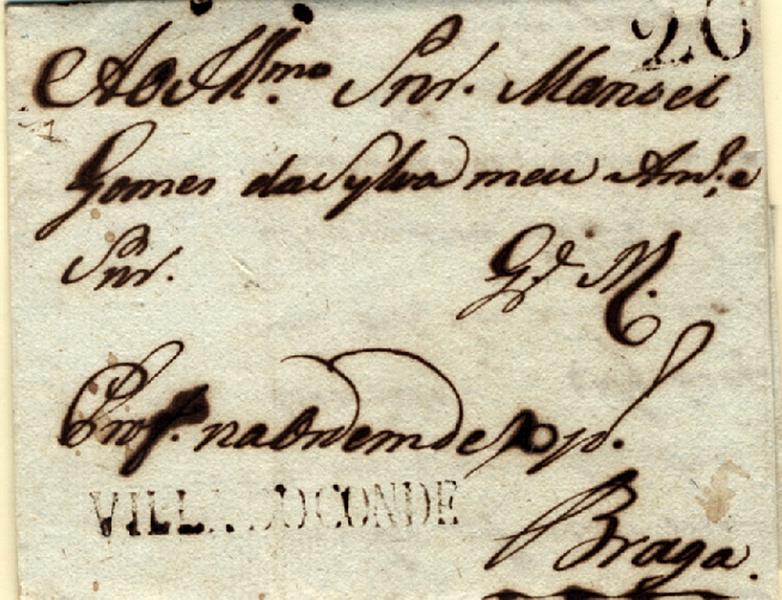 20
Ao Ill.mo Snr. Manoel
Gomes da Sylva meu Am.o e
Snr. Gde M.
Prof. na Ordem de
VILLA DO CONDE
Braga.